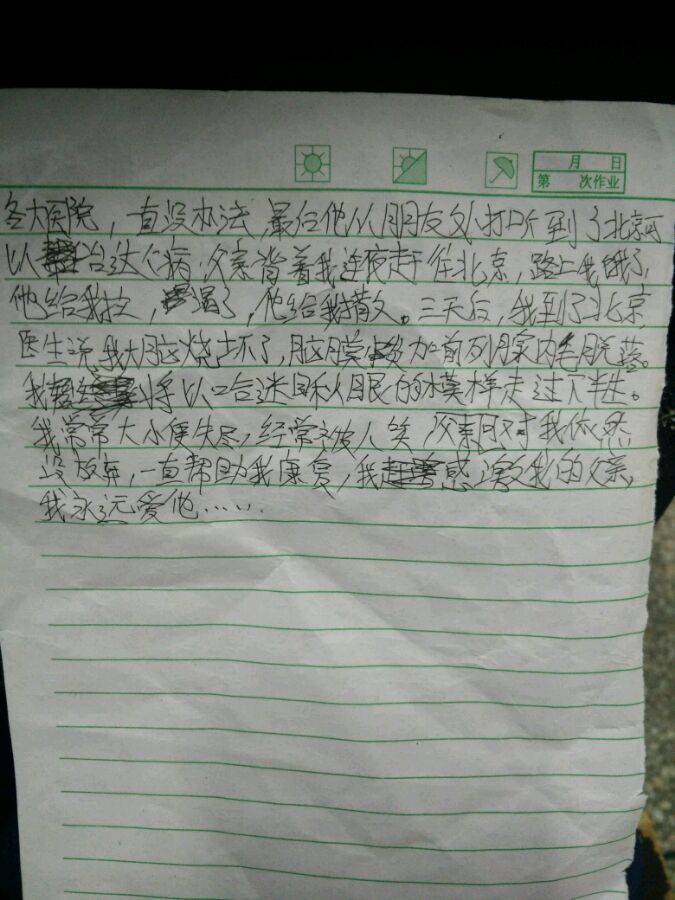 月 日
第 次作业
各大医院，一直没办法，最后他从朋友处打听到了北京可
以治这个病，父亲背着我连夜赶往北京，路上我饿了，
他给我找，渴了，他给我找。三天后，我到了北京
医生说我大脑烧坏了，脑膜 加前列腺内毛脱落。
我 将以口合迷国秋眼的模样走过下半生。
我常常大小便失尽，经常被人笑 父亲却对我依然
没放弃，一直帮助我康复，我 感谢我的父亲，
我永远爱他……